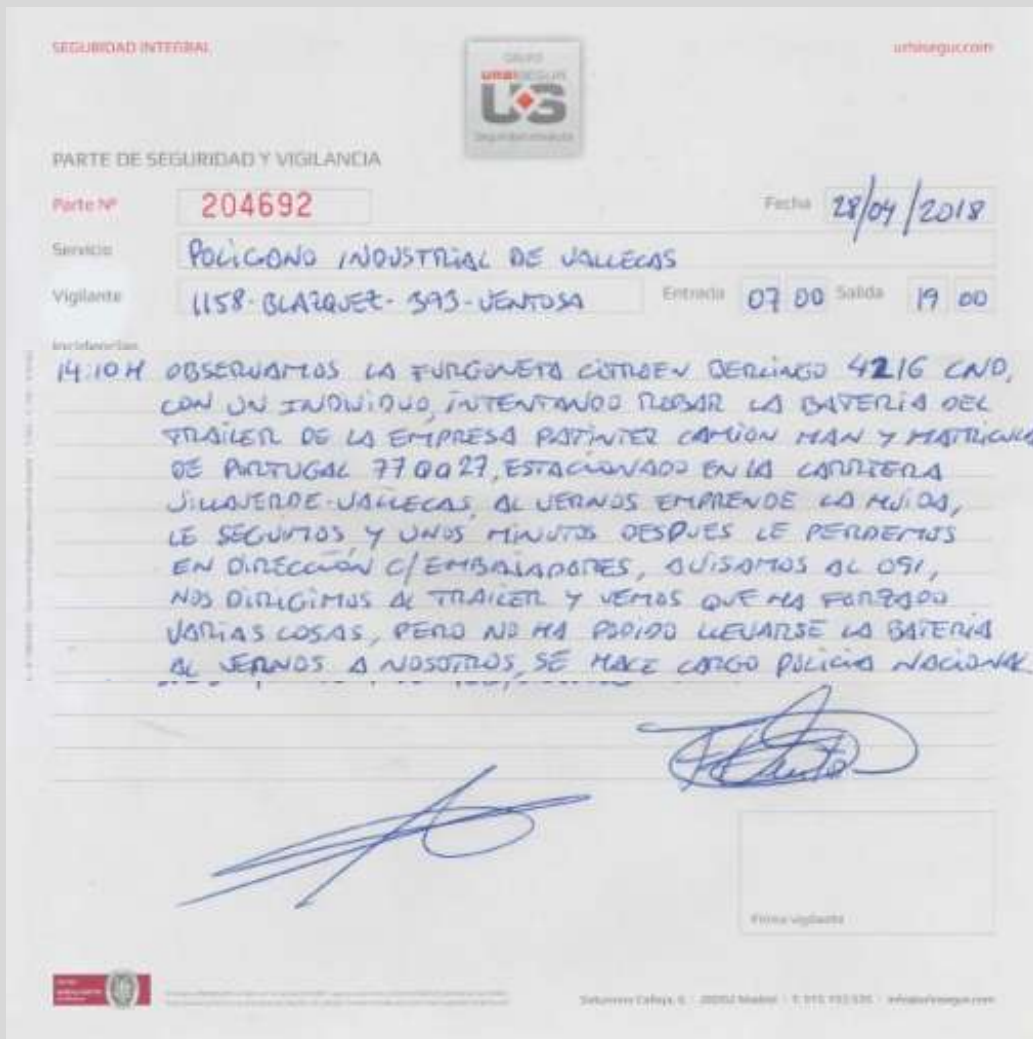 SEGURIDAD INTEGRAL
urbisegur.com
GRUPO
URBISEGUR
US
PARTE DE SEGURIDAD Y VIGILANCIA
Parte Nº 204692 Fecha 28/04/2018
Servicio POLÍGONO INDUSTRIAL DE VALLECAS
Vigilante 1158-BLAZQUEZ-393-VENTOSA Entrada 07 00 Salida 19 00
Incidencias
14:10H OBSERVAMOS LA FURGONETA CITROEN BERLINGO 4216 CND,
CON UN INDIVIDUO, INTENTANDO ROBAR LA BATERIA DEL
TRAILER DE LA EMPRESA PATINTER CAMIÓN MAN Y MATRICULA
DE PORTUGAL 77QQ27, ESTACIONADO EN LA CARRETERA
VILLAVERDE-VALLECAS, AL VERNOS EMPRENDE LA HUIDA,
LE SEGUIMOS Y UNOS MINUTOS DESPUES LE PERDEMOS
EN DIRECCIÓN C/EMBAJADORES, AVISAMOS AL 091,
NOS DIRIGIMOS AL TRAILER Y VEMOS QUE HA FORZADO
VARIAS COSAS, PERO NO HA PODIDO LLEVARSE LA BATERIA
AL VERNOS A NOSOTROS, SE HACE CARGO POLICIA NACIONAL
Firma vigilante
Saturnino Calleja, 6 · 28002 Madrid